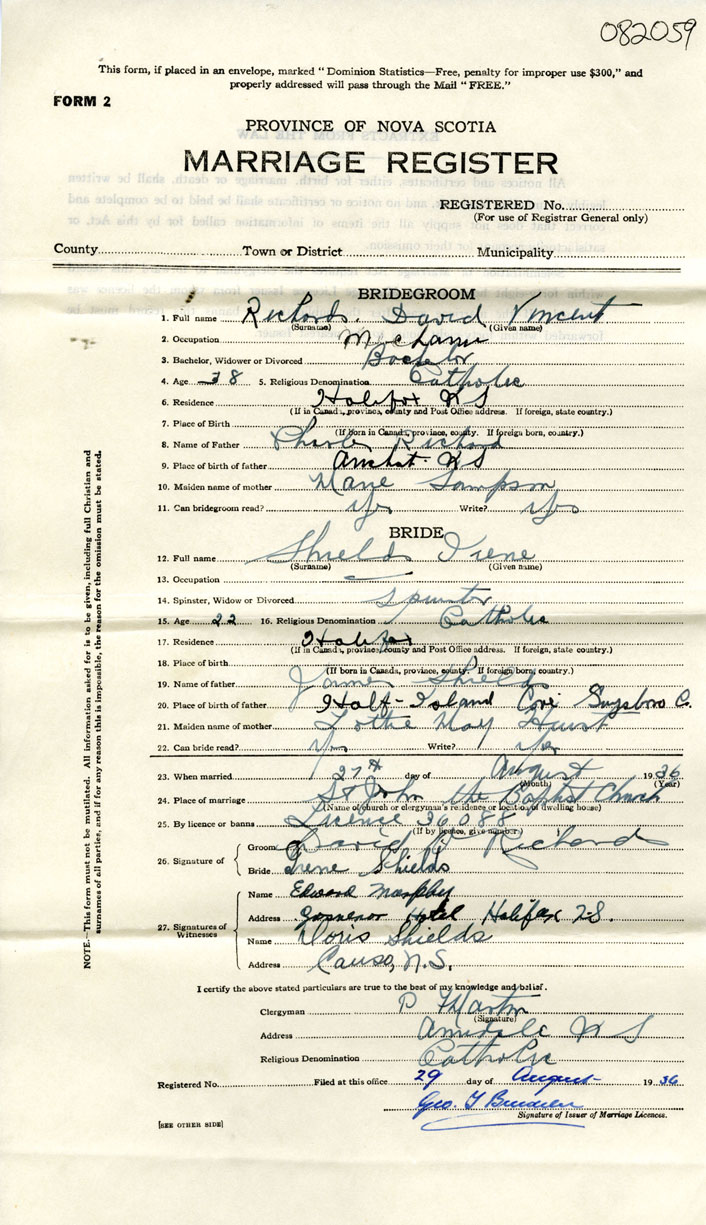 082059
This form, if placed in an envelope, marked "Dominion Statistics—Free, penalty for improper use $300," and
properly addressed will pass through the Mail "FREE."
FORM 2
PROVINCE OF NOVA SCOTIA
MARRIAGE REGISTER
REGISTERED No.
(For use of Registrar General only)
County Town or District Municipality
NOTE.—This form must not be mutilated. All information asked for is to be given, including full Christian and
surnames of all parties, and if for any reason this is impossible, the reason for the omission must be stated.
BRIDEGROOM
1. Full name Richards. David Vincent
(Surname) (Given name)
2. Occupation Mechanic
3. Bachelor, Widower or Divorced Bachelor
4. Age 38 5. Religious Denomination Catholic
6. Residence Halifax N S
(If in Canada, province, county and Post Office address. If foreign, state country.)
7. Place of Birth
(If born in Canada, province, county. If foreign born, country.)
8. Name of Father Charles Richard
9. Place of birth of father Arichat. N S
10. Maiden name of mother Mary Sampson
11. Can bridegroom read? Yes Write? Yes
BRIDE
12. Full name Shields Irene
(Surname) (Given name)
13. Occupation —
14. Spinster, Widow or Divorced Spinster
15. Age 22 16. Religious Denomination Catholic
17. Residence Halifax
(If in Canada, province, county and Post Office address. If foreign, state country.)
18. Place of birth
(If born in Canada, province, county. If foreign born, country.)
19. Name of father James Shields
20. Place of birth of father Half-Island Cove Guysboro C.
21. Maiden name of mother Lottie May Hurst
22. Can bride read? Yes Write? Yes
23. When married 27th day of August 1936
(Month) (Year)
24. Place of marriage St John the Baptist Church
(Name of church or clergyman's residence or location of dwelling house)
25. By licence or banns Licence 36088
(If by licence, give number)
26. Signature of
Groom David V Richard
Bride Irene Shields
27. Signatures of
Witnesses
Name Edward Murphy
Address Hotel Halifax N.S.
Name Doris Shields
Address Canso, N.S.
I certify the above stated particulars are true to the best of my knowledge and belief.
Clergyman P Martin
(Signature)
Address Armdale N S
Religious Denomination Catholic
Registered No. Filed at this office 29 day of August 1936
Geo. T
Signature of Issuer of Marriage Licences.
[SEE OTHER SIDE]